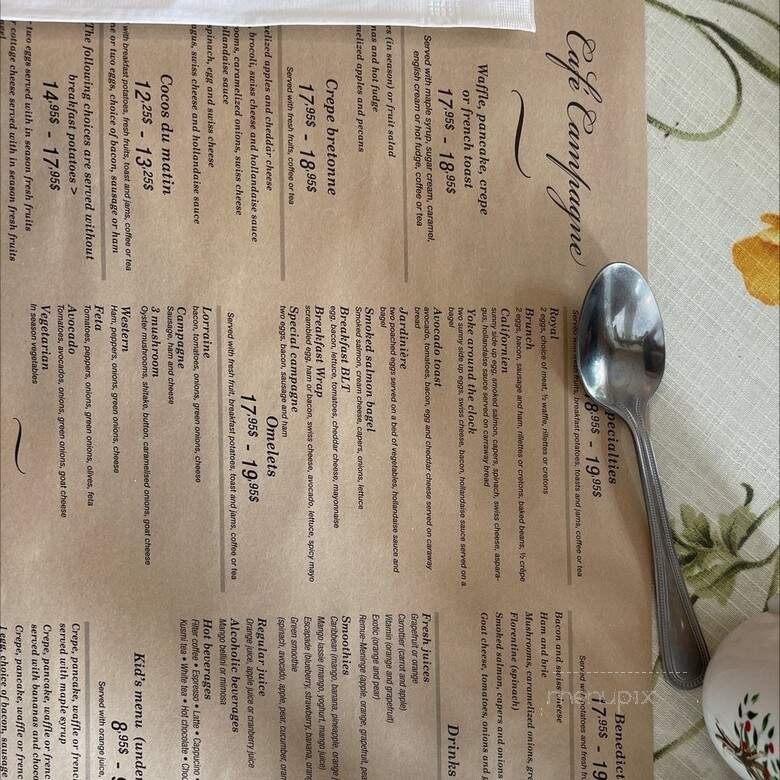 Café Campagne
Waffle, pancake, crepe
or french toast
17.95$ - 18.95$
Served with maple syrup, sugar cream, caramel,
english cream or hot fudge, coffee or tea
es (in season) or fruit salad
nas and hot fudge
melized apples and pecans
Crepe bretonne
17.95$ - 18.95$
Served with fresh fruits, coffee or tea
melized apples and cheddar cheese
broccoli, swiss cheese and hollandaise sauce
ooms, caramelized onions, swiss cheese
ollandaise sauce
spinach, egg and swiss cheese
agus, swiss cheese and hollandaise sauce
Cocos du matin
12.25$ - 13.25$
with breakfast potatoes, fresh fruits, toast and jams, coffee or tea
ne or two eggs, choice of bacon, sausage or ham
The following choices are served without
breakfast potatoes >
14.95$ - 17.95$
two eggs served with in season fresh fruits
cottage cheese served with in season fresh fruits
pecialties
8.95$ - 19.95$
fruits, breakfast potatoes, toasts and jams, coffee or tea
Royal
2 eggs, choice of meat, ½ waffle, rillettes or cretons
Brunch
2 eggs, bacon, sausage and ham, rillettes or cretons, baked beans, ½ crêpe
Californien
sunny side up egg, smoked salmon, capers, spinach, swiss cheese, aspara-
gus, hollandaise sauce served on carraway bread
Yoke around the clock
two sunny side up eggs, swiss cheese, bacon, hollandaise sauce served on a
bagel
Avocado toast
avocado, tomatoes, bacon, egg and cheddar cheese served on caraway
bread
Jardinière
two poached eggs served on a bed of vegetables, hollandaise sauce and
bagel
Smoked salmon bagel
Smoked salmon, cream cheese, capers, onions, lettuce
Breakfast BLT
egg, bacon, lettuce, tomatoes, cheddar cheese, mayonnaise
Breakfast Wrap
scrambled egg, ham or bacon, swiss cheese, avocado, lettuce, spicy mayo
Special campagne
two eggs, bacon, sausage and ham
Omelets
17.95$ - 19.95$
Served with fresh fruit, breakfast potatoes, toast and jams, coffee or tea
Lorraine
bacon, tomatoes, onions, green onions, cheese
Campagne
Sausage, ham and cheese
3 mushroom
Oyster mushrooms, shitake, button, caramelised onions, goat cheese
Western
Ham, peppers, onions, green onions, cheese
Feta
Tomatoes, peppers, onions, green onions, olives, feta
Avocado
Tomatoes, avocados, onions, green onions, goat cheese
Vegetarian
In season vegetables
Benedic
17.95$ - 19
Served with potatoes and fresh fr
Bacon and swiss cheese
Ham and brie
Mushrooms, caramelized onions, gre
Florentine (spinach)
Smoked salmon, capers and onions
Goat cheese, tomatoes, onions and
Drinks
Fresh juices
Grapefruit or orange
Carrottier (carrot and apple)
Vitamin (orange and grapefruit)
Exotic (orange and pear)
Remue-Méninge (apple, orange, grapefruit, pea
Smoothies
Caribbean (mango, banana, pineapple, orange
Mango lassie (mango, yoghurt, mango juice)
Escapade (blueberry, strawberry, banana, oran
Green smoothie
(spinach, avocado, apple, pear, cucumber, oran
Regular juice
Orange juice, apple juice or cranberry juice
Alcoholic beverages
Mango bellini or mimosa
Hot beverages
Filter coffee • Espresso • Latte • Cappucino
Kusmi tea • White tea • Hot chocolate • Choc
Kid's menu (under
8.95$ -
Served with orange juice,
Crepe, pancake, waffle or frenc
served with maple syrup
Crepe, pancake, waffle or frenc
served with bananas and choco
Crepe, pancake, waffle or frenc
1 egg, choice of bacon, sausage
menupix